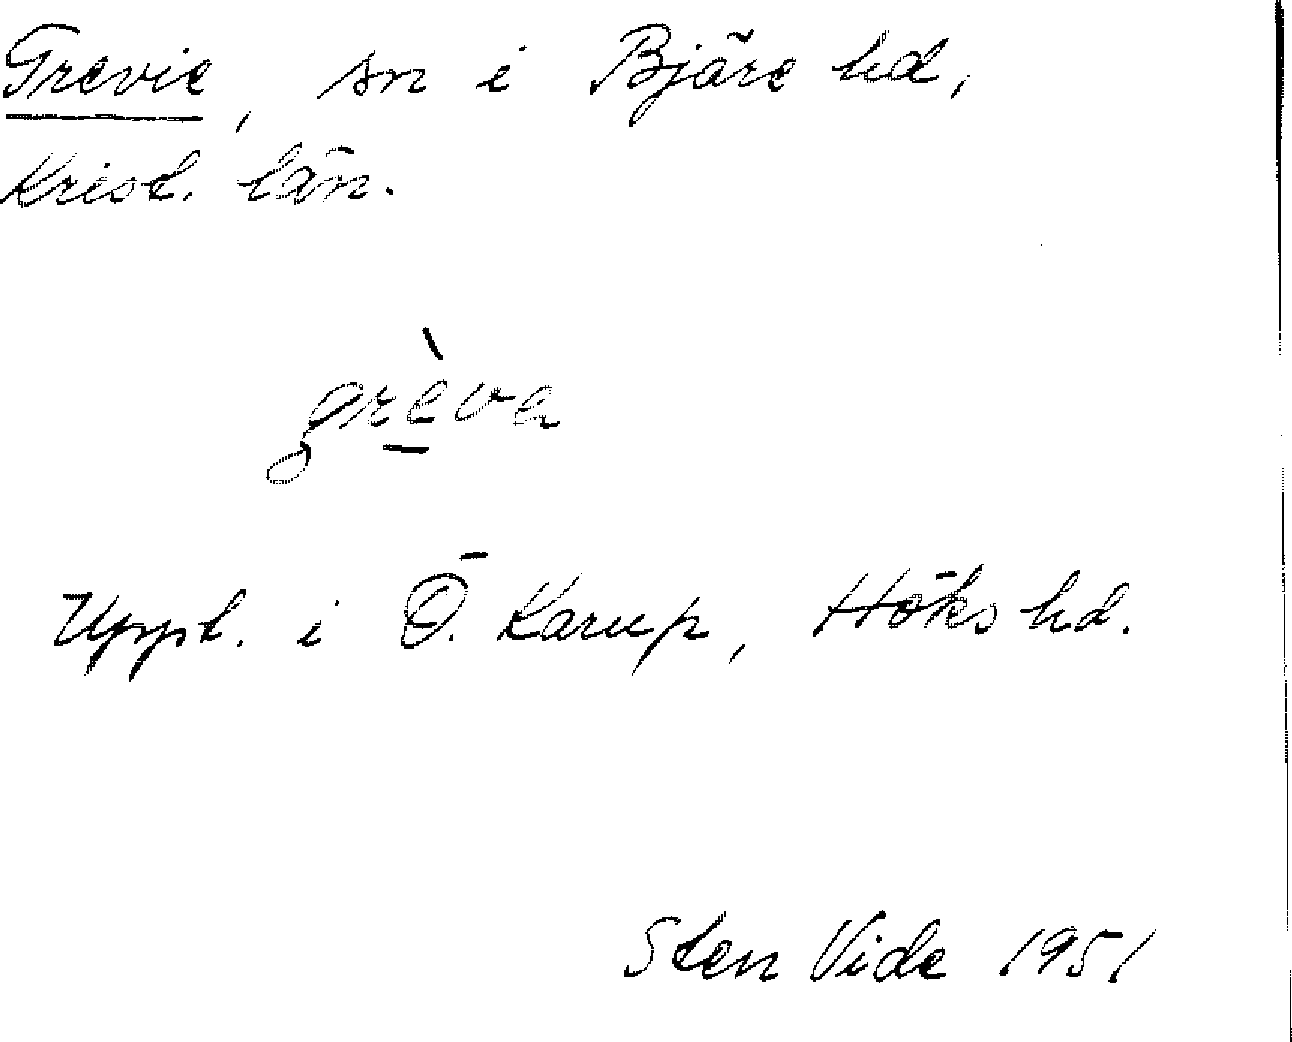 Grevie, sn i Bjäre hd,
Krist. län.
grèva
Uppt. i Ö. Karup, Höks hd.
Sten Vide 1951